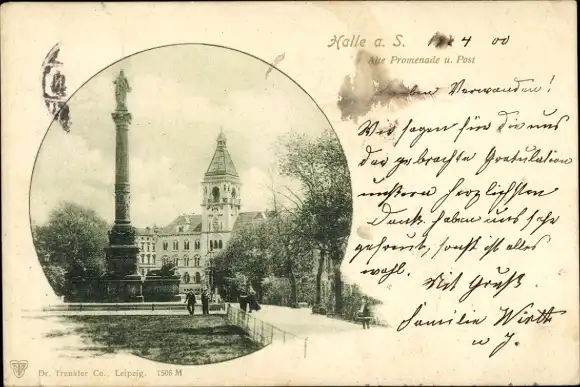 Halle a. S. 4 00
Alte Promenade u. Post
Lieben Verwanden!
Wir sagen für die uns
dar gebrachte Gratulation
unseren herzlichsten
Dank, haben uns sehr
gefreut, sonst ist alles
wohl.
Mit Gruß
Familie Wirth
u J.
Dr. Trenkler Co., Leipzig. 1506 M